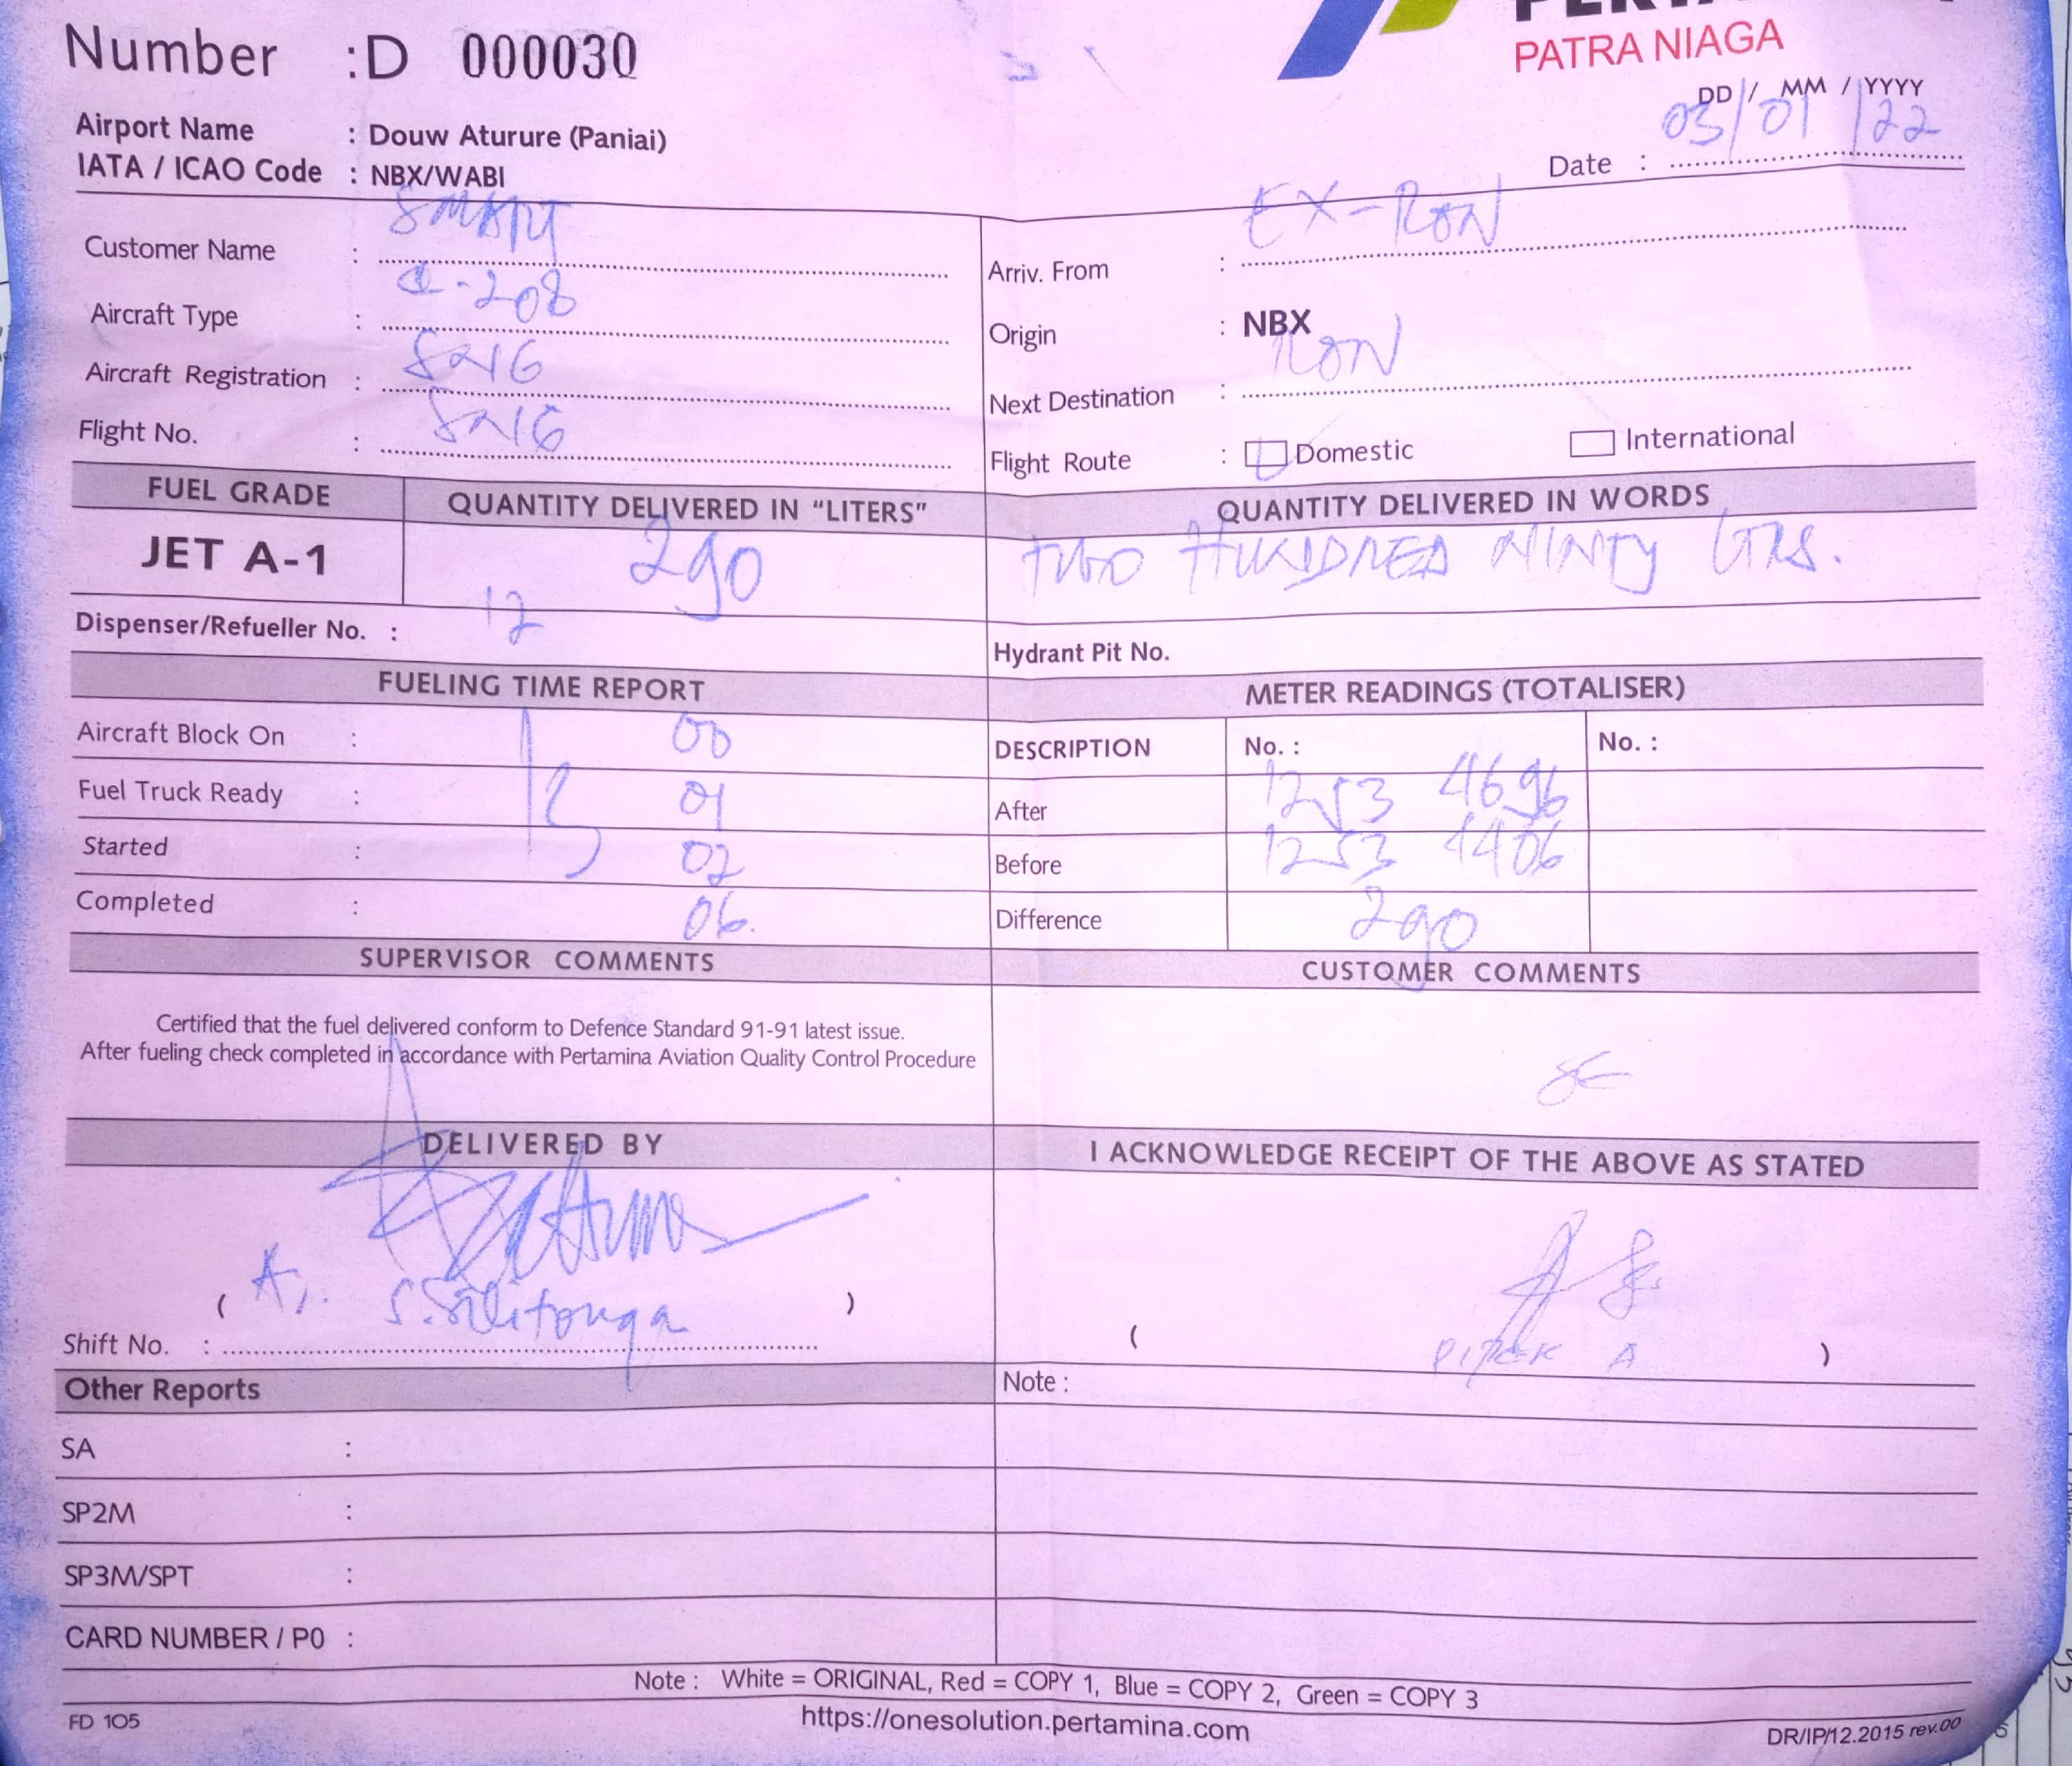 Number : D 000030
PATRA NIAGA
DD / MM / YYYY
Airport Name : Douw Aturure (Paniai)
IATA / ICAO Code : NBX/WABI
Date : 03/01/22
Customer Name : SMART
Aircraft Type : C-208
Aircraft Registration :
Flight No. :
Arriv. From : EX-RON
Origin : NBX
Next Destination : RON
Flight Route : Domestic International
FUEL GRADE QUANTITY DELIVERED IN "LITERS" QUANTITY DELIVERED IN WORDS
JET A-1 290 TWO HUNDRED NINTY LTRS.
Dispenser/Refueller No. : 12
Hydrant Pit No.
FUELING TIME REPORT
Aircraft Block On : 00
Fuel Truck Ready : 01
Started : 02
Completed : 06.
METER READINGS (TOTALISER)
DESCRIPTION No. : No. :
After 1253 4696
Before 1253 4406
Difference 290
SUPERVISOR COMMENTS
Certified that the fuel delivered conform to Defence Standard 91-91 latest issue.
After fueling check completed in accordance with Pertamina Aviation Quality Control Procedure
CUSTOMER COMMENTS
DELIVERED BY
( A. S. Silitonga )
Shift No. :
I ACKNOWLEDGE RECEIPT OF THE ABOVE AS STATED
( A )
Other Reports
SA :
SP2M :
SP3M/SPT :
CARD NUMBER / P0 :
Note :
Note : White = ORIGINAL, Red = COPY 1, Blue = COPY 2, Green = COPY 3
https://onesolution.pertamina.com
FD 105
DR/IP/12.2015 rev.00